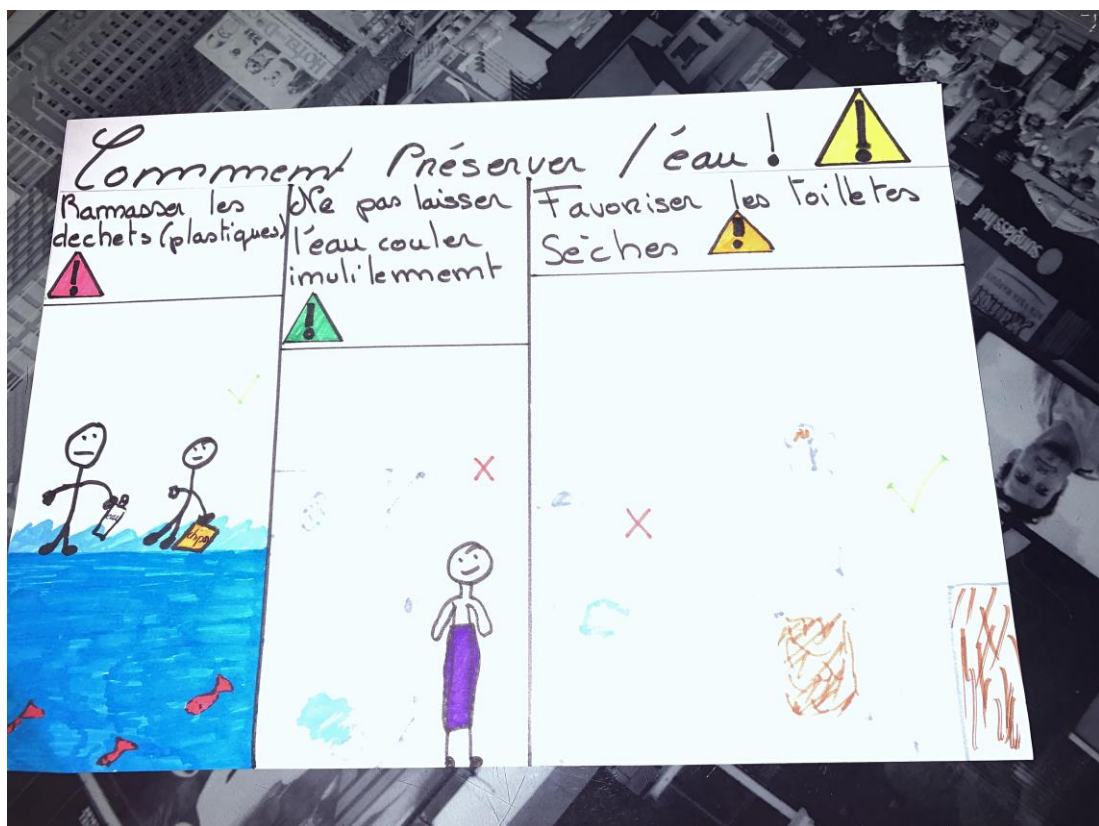 Commment Préserver l'éau !
Ramasser les
dechets (plastiques)
Ne pas laisser
l'éau couler
inutilemment
Favoriser les toilletes
Sèches
Sunglass Hut